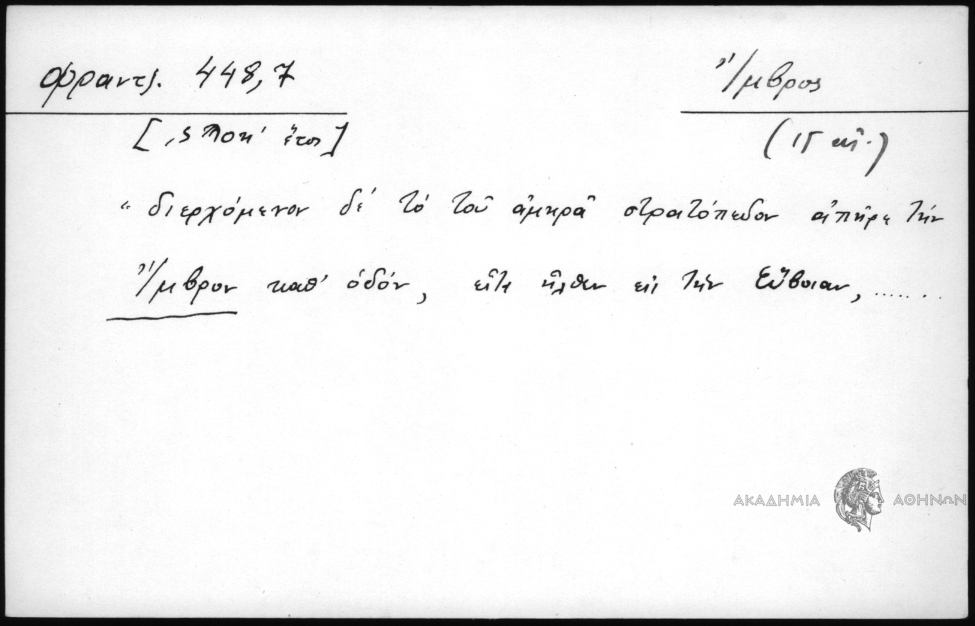 Φραντζ. 448,7
Ἴμβρος
[͵ϛ Ϡοη' ἔτος]
(ΙΓ αἰ.)
"διερχόμενον δέ τό τοῦ ἀμηρᾶ στρατόπεδον ἀπῆρε τήν
Ἴμβρον καθ' ὁδόν, εἶτα ἦλθεν εἰς τήν Εὔβοιαν, .......
ΑΚΑΔΗΜΙΑ ΑΘΗΝΩΝ